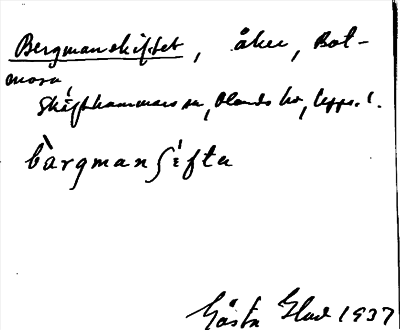 Bergmanskiftet, åker, Bot-
mora,
Skäfthammars sn, Olands hd, Uppl.
bàrgmanʃifta
Gösta Elad 1937